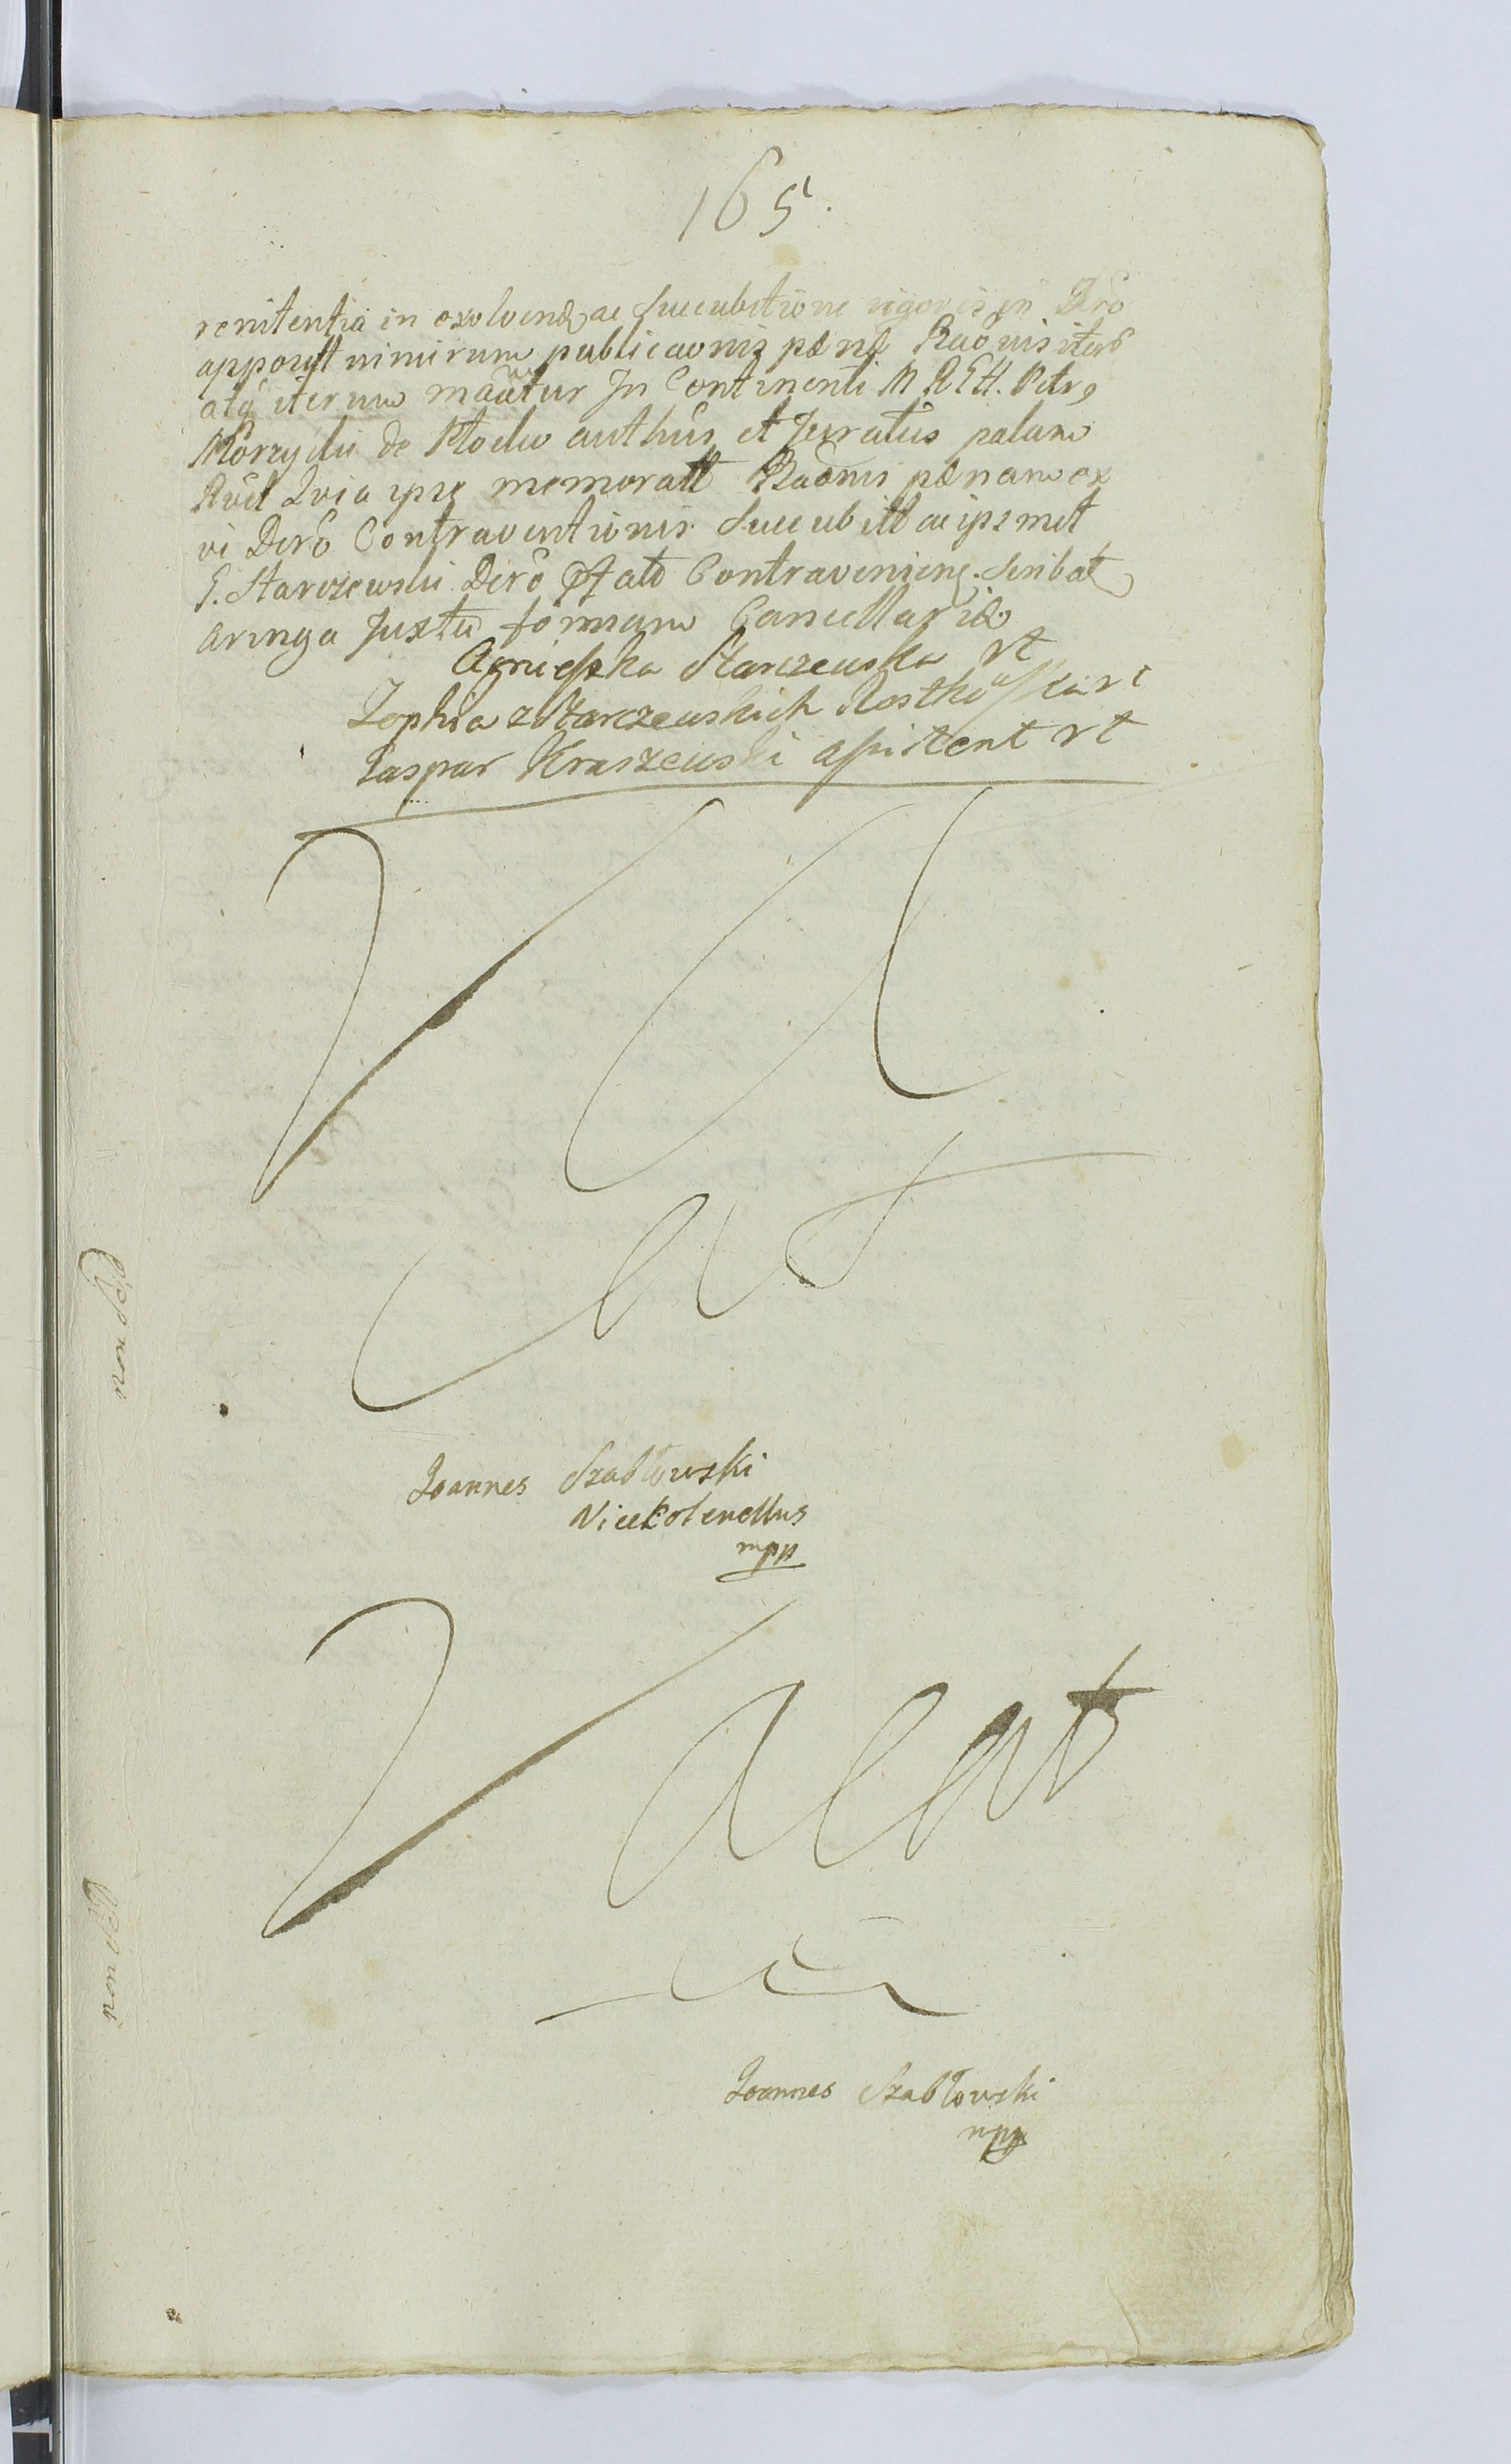 165.
renitentia in exolvend ac succubitione rigoris in Dcro
apposit nimirum publicaonis pænæ Baonis iterb
atq iterum maätur In Continenti M R G H. Petr9
Morzycki de Plocko authus et Juratus palam
Rvit Qvia ipse memoratt Baonis pænam ex
vi Dcro Contraventionis succubitt ac ipsemet
G. Starczewski Dcro Pftato Contraveniens. scribat
aringa Juxta formam Cancellariæ
Agnieszka Starczewska rt
Zophia z Starczewskich Rostkowska rt
Gaspar Kraszewski assistent rt
Val
eat
Joannes Szabłowski
Vicekolenellus
mpp
Valeat
Joannes Szabłowski
mpp
non
non